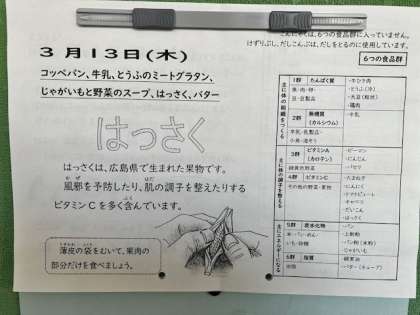 こんにゃくは、6つの食品群に入っていません。
けずりぶし、だしこんぶは、だしをとるのに使用しています。
3月13日(木)
コッペパン、牛乳、とうふのミートグラタン、
じゃがいもと野菜のスープ、はっさく、バター
はっさく
はっさくは、広島県で生まれた果物です。
風邪を予防したり、肌の調子を整えたりする
ビタミンCを多く含んでいます。
薄皮の袋をむいて、果肉の
部分だけを食べましょう。
6つの食品群
主に体の組織をつくる
1群 たんぱく質
魚・肉・卵・
豆・豆製品
・牛ひき肉
・とうふ(冷)
・鶏肉
2群 無機質
(カルシウム)
牛乳・乳製品・
小魚・海そう
・牛乳
主に体の調子を整える
3群 ビタミンA
(カロテン)
緑黄色野菜
・ピーマン
・にんじん
・パセリ
4群 ビタミンC
その他の野菜・果物
・たまねぎ
・にんにく
・キャベツ
・だいこん
・はっさく
主にエネルギーになる
5群 炭水化物
米・パン・めん・
いも・砂糖
・パン
・上新粉
・パン粉(米粉)
・じゃがいも
6群 脂質
油脂
・バター(チューブ)